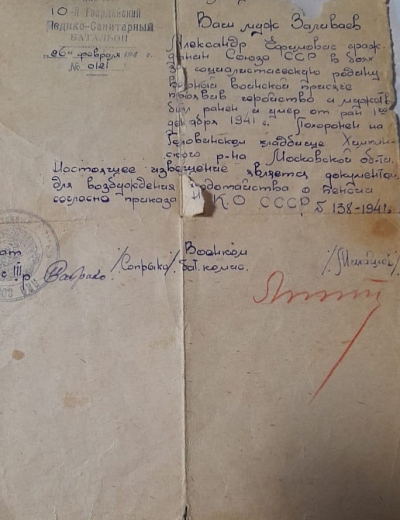 10-й Гвардейский
Медико-Санитарный
БАТАЛЬОН
"26" февраля 194 г.
№ 0121
Ваш муж Заливаев
Александр Ефимович граж-
данин Союза ССР в боях
за социалистическую родину
верный воинской присяге
проявив геройство и мужеств
был ранен и умер от ран 1го
декабря 1941 г. Похоронен на
Головинском кладбище Химкин-
ского р-на Московской обл.
Настоящее извещение является документом
для возбуждения ходотайства о пенсии
согласно приказа Н.К.О СССР № 138-1941г.
Военком
/Сопрыко/ бат. комис.